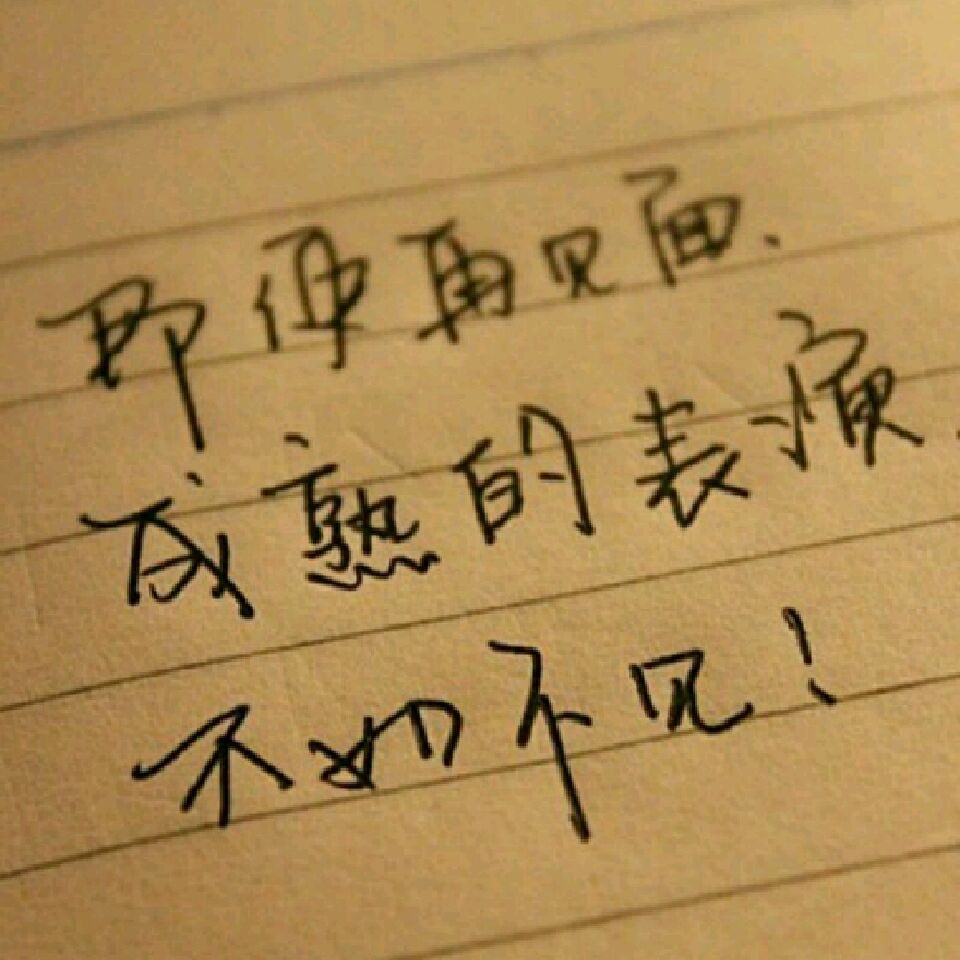 即便再见面.
成熟的表演.
不如不见!